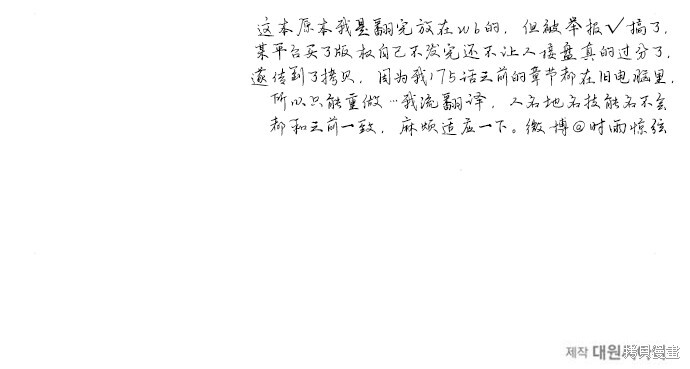 这本原本我是翻完放在wb的，但被举报√搞了，
某平台买了版权自己不发完还不让人接盘真的过分了，
遂传到了拷贝，因为我175话之前的章节都在旧电脑里，
所以只能重做…我流翻译，人名地名技能名不会
都和之前一致，麻烦适应一下。微博@时雨惊弦
제작 대원
拷貝漫畫